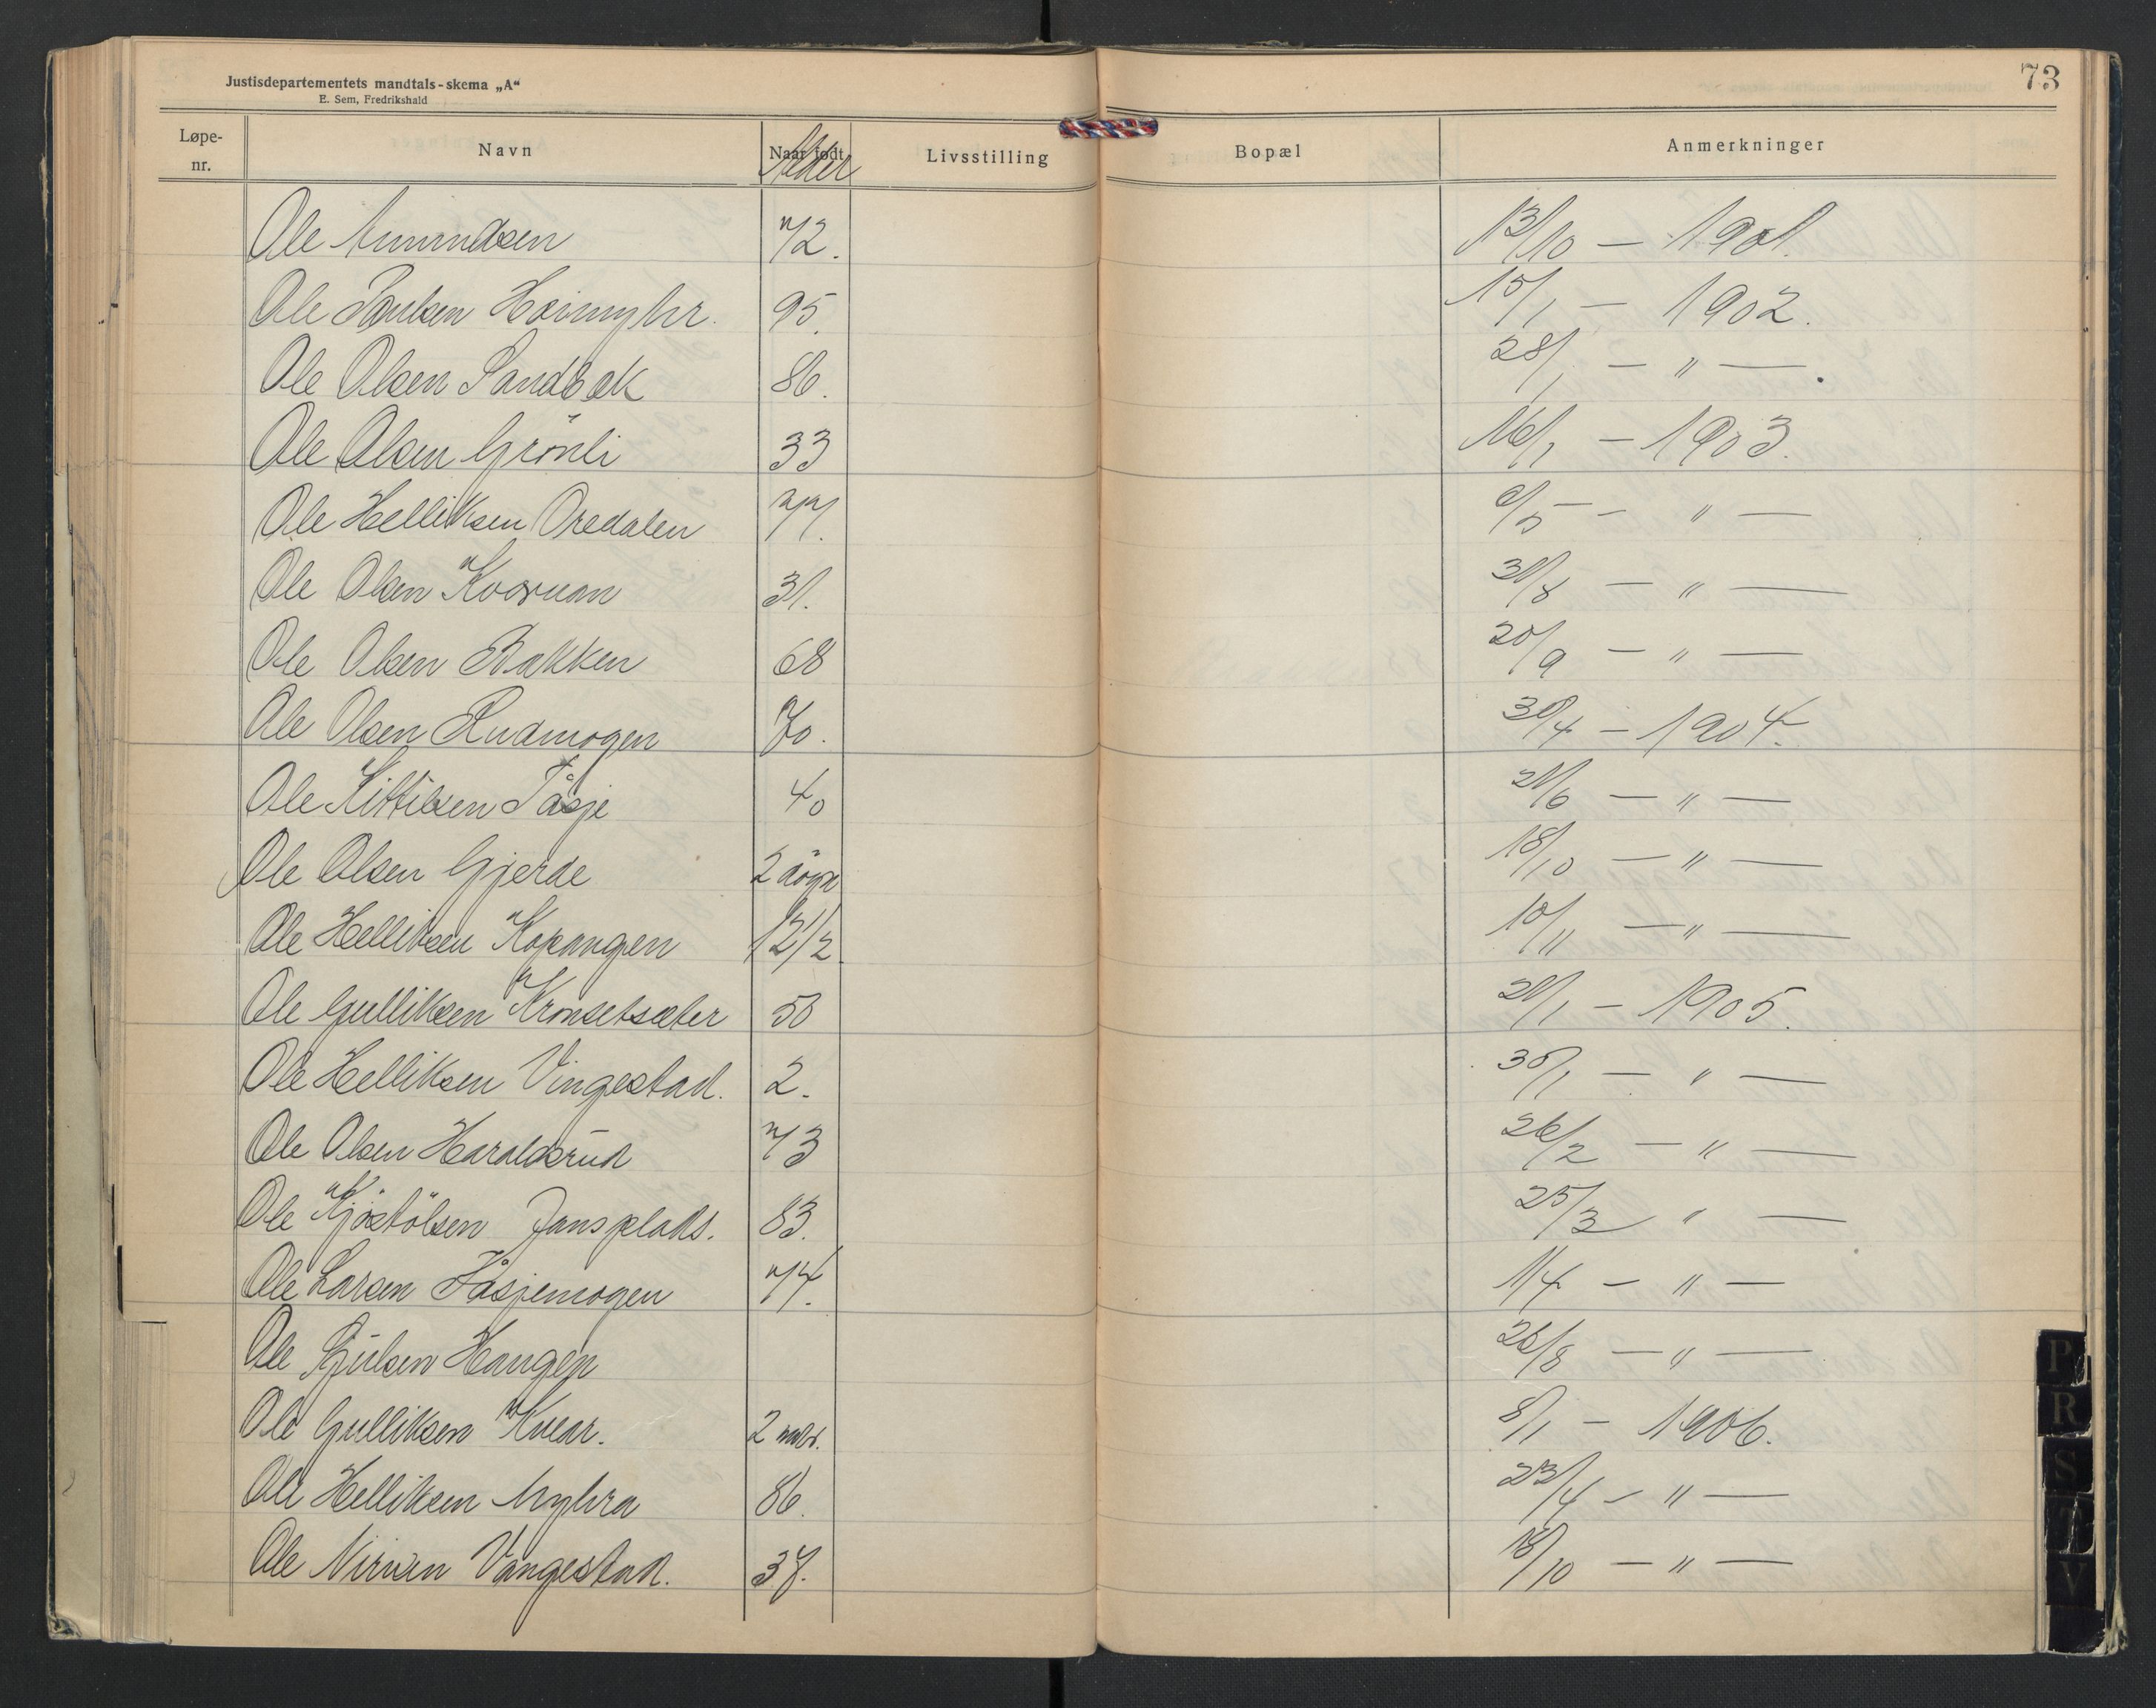 Justisdepartementets mandtals-skema „A“
E. Sem, Fredrikshald
73
Løpe-nr. Navn Naar født Alder Livsstilling Bopæl Anmerkninger
Ole Amundsen 72. 13/10 — 1901.
Ole Paulsen Høimyhr. 95. 15/1 — 1902.
Ole Olsen Sandbæk 86. 28/1 — " —
Ole Olsen Grönli 33 16/1 — 1903.
Ole Helliksen Oredalen 77. 6/5 — " —
Ole Olsen 31. 31/8 — " —
Ole Olsen Bakken 68 20/9 — " —
Ole Olsen Rudmogen 70. 30/4 — 1904.
Ole Kittilsen Tåsje 40 21/6 — " —
Ole Olsen Gjerde 2 18/10 — " —
Ole Helliksen Kopangen 12 1/2. 10/11 — " —
Ole Gulliksen Kronsetsæter 50 21/1 — 1905.
Ole Helliksen Vingestad. 2. 30/1 — " —
Ole Olsen Haraldsrud 73 26/2 — " —
Ole Kjöstölsen Jansplads. 83. 25/3 " —
Ole Larsen Tåsjemogen 74. 1/4 — " —
Ole Haugen 26/8 — " —
Ole Gulliksen 2 8/1 — 1906.
Ole Helliksen Myhra 86. 23/4 — " —
Ole Nirisen Vangestad. 37. 18/10 — " —
P
R
S
T
V